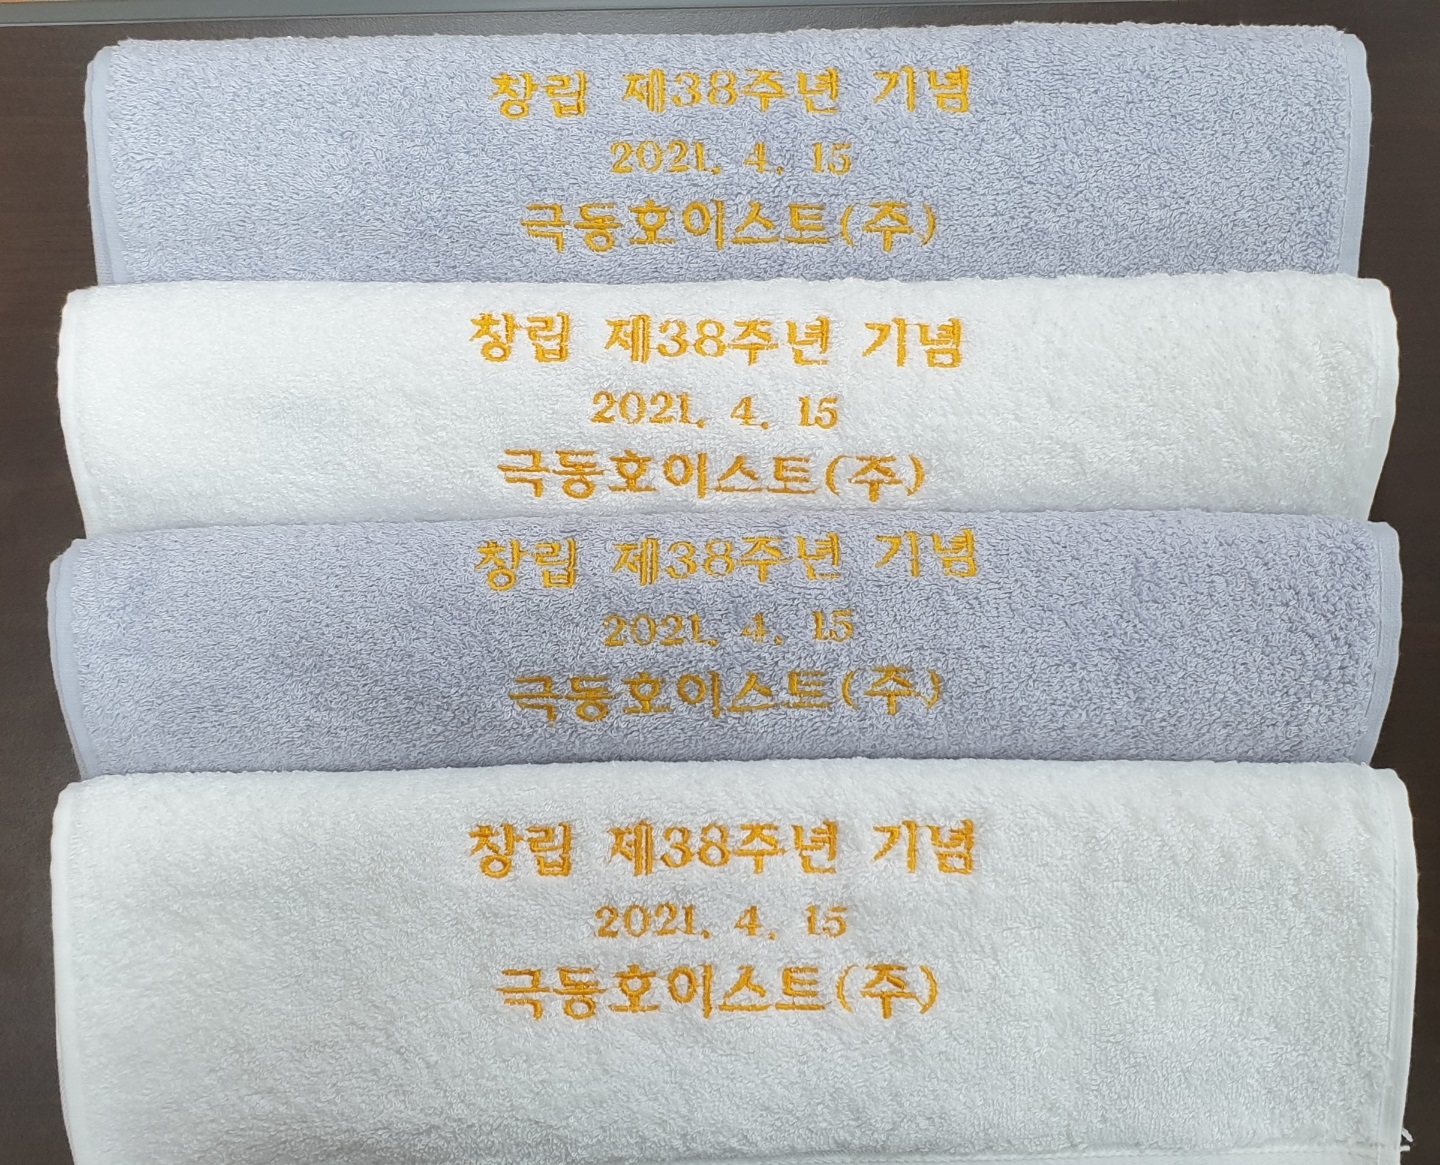 창립 제38주년 기념
2021. 4. 15
극동호이스트(주)
창립 제38주년 기념
2021. 4. 15
극동호이스트(주)
창립 제38주년 기념
2021. 4. 15
극동호이스트(주)
창립 제38주년 기념
2021. 4. 15
극동호이스트(주)